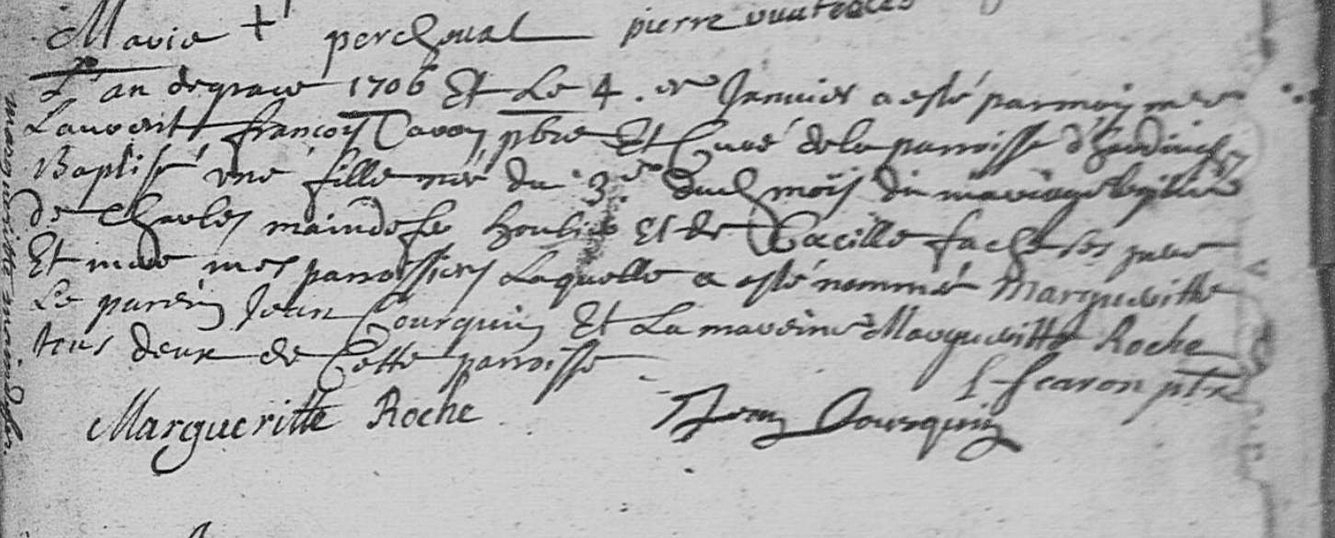 Marie + percheval pierre
L'an de grace 1706 Et Le 4.e Janvier a esté par moy mre
Laurent françois Caron pbre Et Curé de la parroisse d'
Baptisé une fille née du 3e dud mois du mariage legitime
de Charles maindefer Et de Cecille fache ses pere
Et mere mes parroissiens Laquelle a esté nommée Margueritte
Le parein Jean Courquin Et La mareine Margueritte Roche
tous deux de Cette parroisse
L f caron ptre
Margueritte Roche Jean Courquin
margueritte maindefer